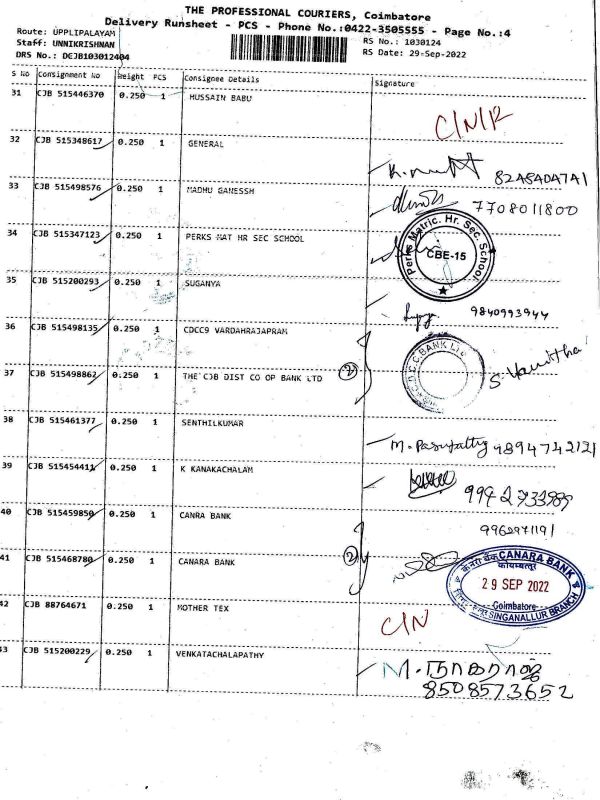 THE PROFESSIONAL COURIERS, Coimbatore
Delivery Runsheet - PCS - Phone No.:0422-3505555 - Page No.:4
Route: UPPLIPALAYAM
Staff: UNNIKRISHNAN
DRS No.: DEJB103012404
RS No.: 1030124
RS Date: 29-Sep-2022
S No Consignment No Weight PCS Consignee Details Signature
31 CJB 515446370 0.250 1 HUSSAIN BABU
32 CJB 515348617 0.250 1 GENERAL
33 CJB 515498576 0.250 1 MADHU GANESSH 7708011800
34 CJB 515347123 0.250 1 PERKS MAT HR SEC SCHOOL
Perks Matric. Hr. Sec. School
CBE-15
35 CJB 515200293 0.250 1 SUGANYA 9840993944
36 CJB 515498135 0.250 1 CDCC9 VARDAHRAJAPRAM
37 CJB 515498862 0.250 1 THE CJB DIST CO OP BANK LTD 2
C.D.C.C BANK Ltd
38 CJB 515461377 0.250 1 SENTHILKUMAR
39 CJB 515454411 0.250 1 K KANAKACHALAM
40 CJB 515459850 0.250 1 CANRA BANK
41 CJB 515468780 0.250 1 CANARA BANK 2
केनरा बैंक CANARA BANK
कोयम्बत्तूर
29 SEP 2022
Coimbatore
SINGANALLUR BRANCH
42 CJB 88764671 0.250 1 MOTHER TEX
43 CJB 515200229 0.250 1 VENKATACHALAPATHY
8508573652